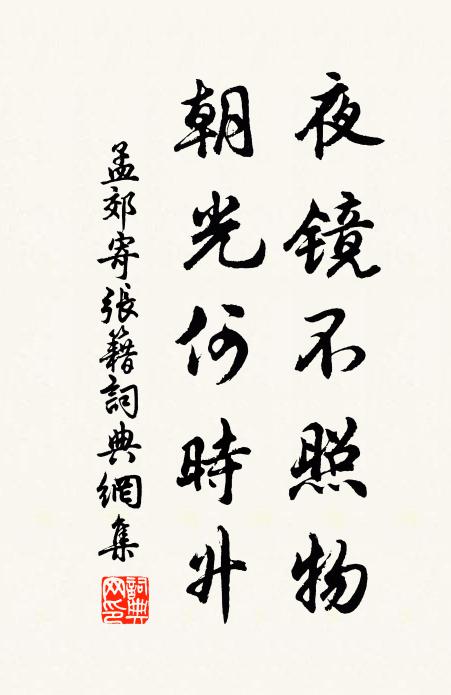 夜镜不照物
朝光何時升
孟郊寄張籍詞典網集
詞典网印